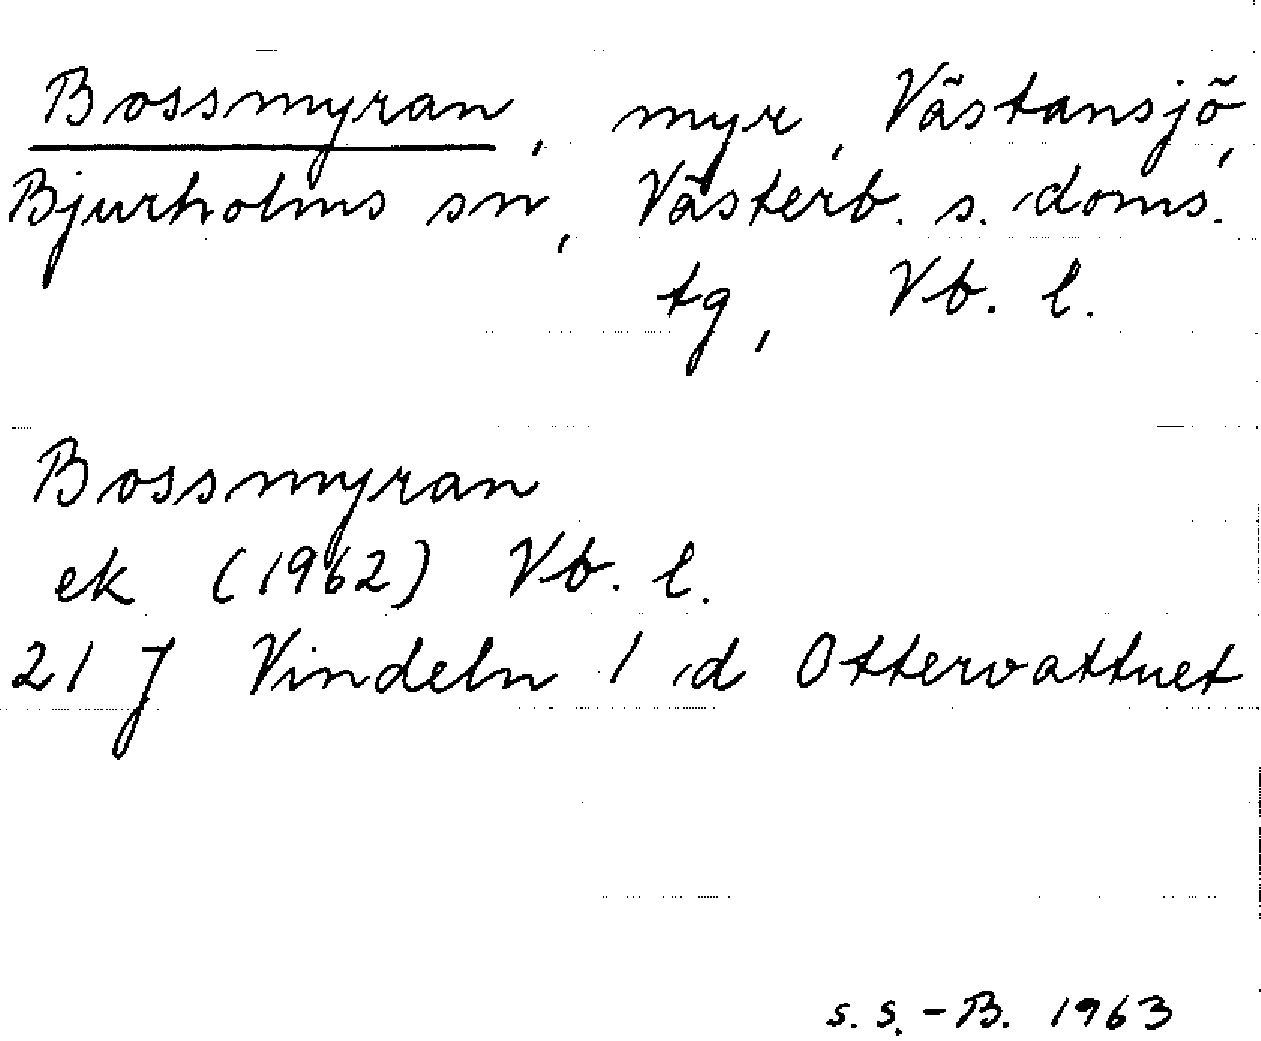 Bossmyran, myr, Västansjö,
Bjurholms sn, Västerb. s. doms.
tg, Vb. l.
Bossmyran
ek (1962) Vb. l.
21 J Vindeln 1 d Ottervattnet
s. s. - B. 1963